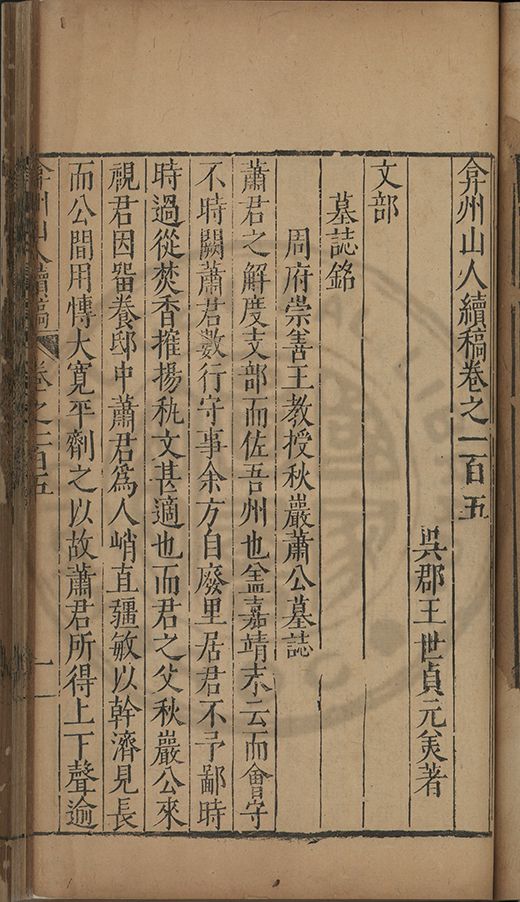 弇州山人續稿卷之一百五
吳郡王世貞元美著
文部
墓誌銘
周府崇善王教授秋巖蕭公墓誌
蕭君之解度支部而佐吾州也盖嘉靖末云而會守
不時闕蕭君數行守事余方自廢里居君不予鄙時
時過從焚香搉揚秇文甚適也而君之父秋巖公來
視君因畱養邸中蕭君爲人峭直彊敏以幹濟見長
而公間用慱大寛平劑之以故蕭君所得上下聲逾
弇州山人續稿 卷之一百五 一